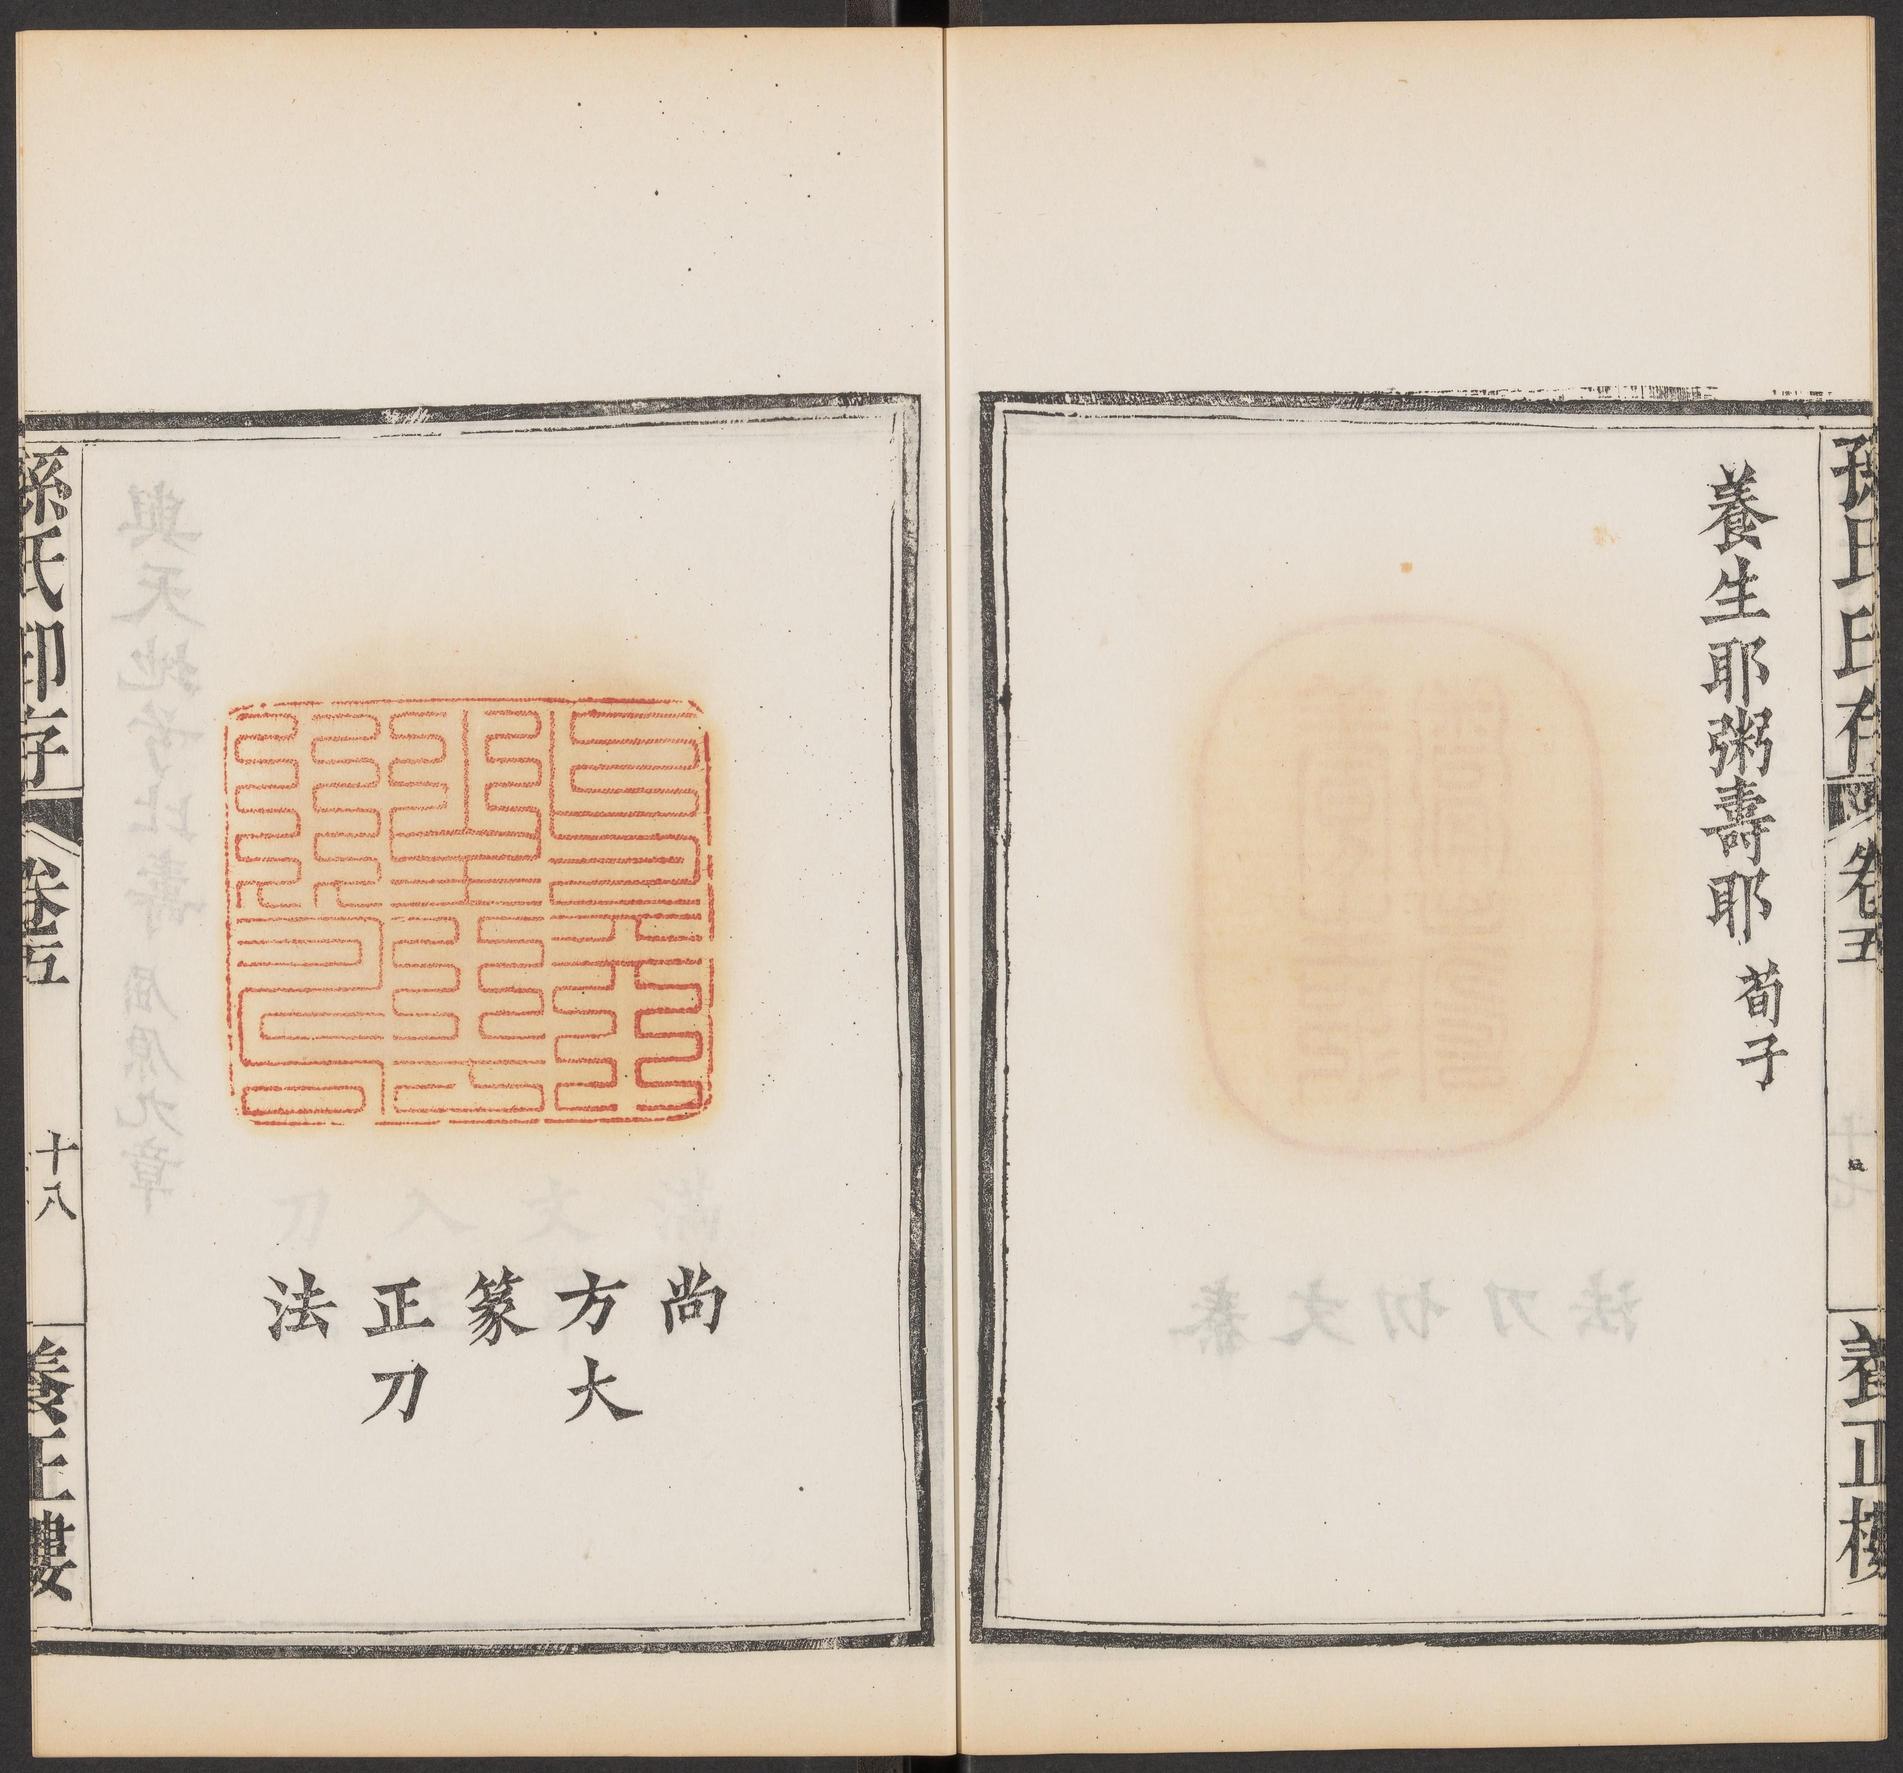 孫氏印存
卷五
養正樓
養生耶粥壽耶 荀子
尚
方大
篆
正刀
法
孫氏印存
卷五
十八
養正樓